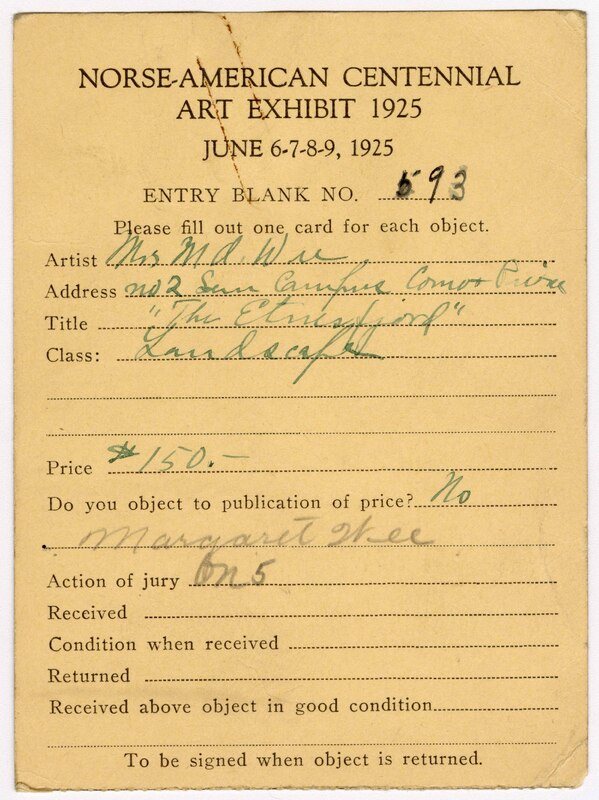 NORSE-AMERICAN CENTENNIAL
ART EXHIBIT 1925
JUNE 6-7-8-9, 1925
ENTRY BLANK NO. 593
Please fill out one card for each object.
Artist Mrs M.O. Wee
Address no 2 Sem Campus Como + Pierce
Title "The Etnefjord"
Class: Landscape
Price $150.-
Do you object to publication of price? No
Margaret Wee
Action of jury 5
Received
Condition when received
Returned
Received above object in good condition
To be signed when object is returned.